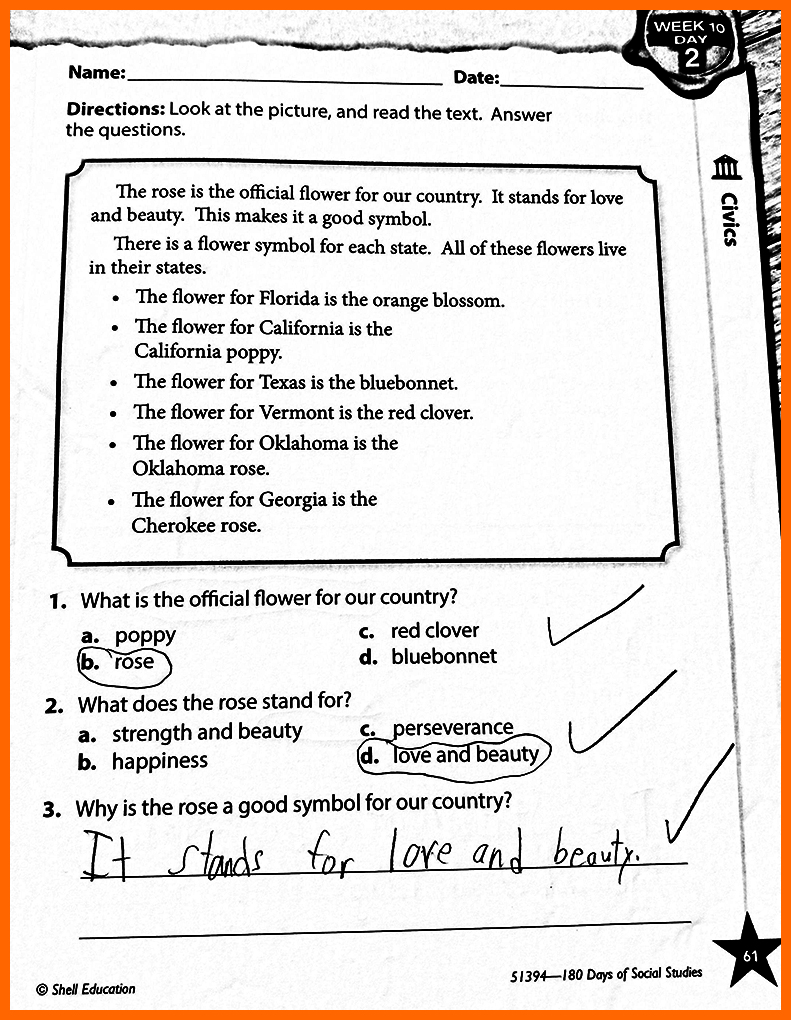 WEEK 10
DAY
2
Name: Date:
Directions: Look at the picture, and read the text. Answer
the questions.
Civics
The rose is the official flower for our country. It stands for love
and beauty. This makes it a good symbol.
There is a flower symbol for each state. All of these flowers live
in their states.
• The flower for Florida is the orange blossom.
• The flower for California is the
California poppy.
• The flower for Texas is the bluebonnet.
• The flower for Vermont is the red clover.
• The flower for Oklahoma is the
Oklahoma rose.
• The flower for Georgia is the
Cherokee rose.
1. What is the official flower for our country?
a. poppy
b. rose
c. red clover
d. bluebonnet
2. What does the rose stand for?
a. strength and beauty
b. happiness
c. perseverance
d. love and beauty
3. Why is the rose a good symbol for our country?
It stands for love and beauty.
61
51394—180 Days of Social Studies
© Shell Education